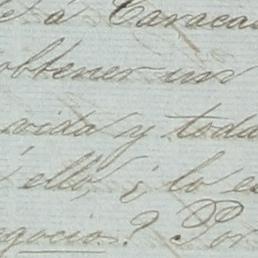 á Caracas
obtener un
vida y toda
ello, ¿lo es
negocio? Por